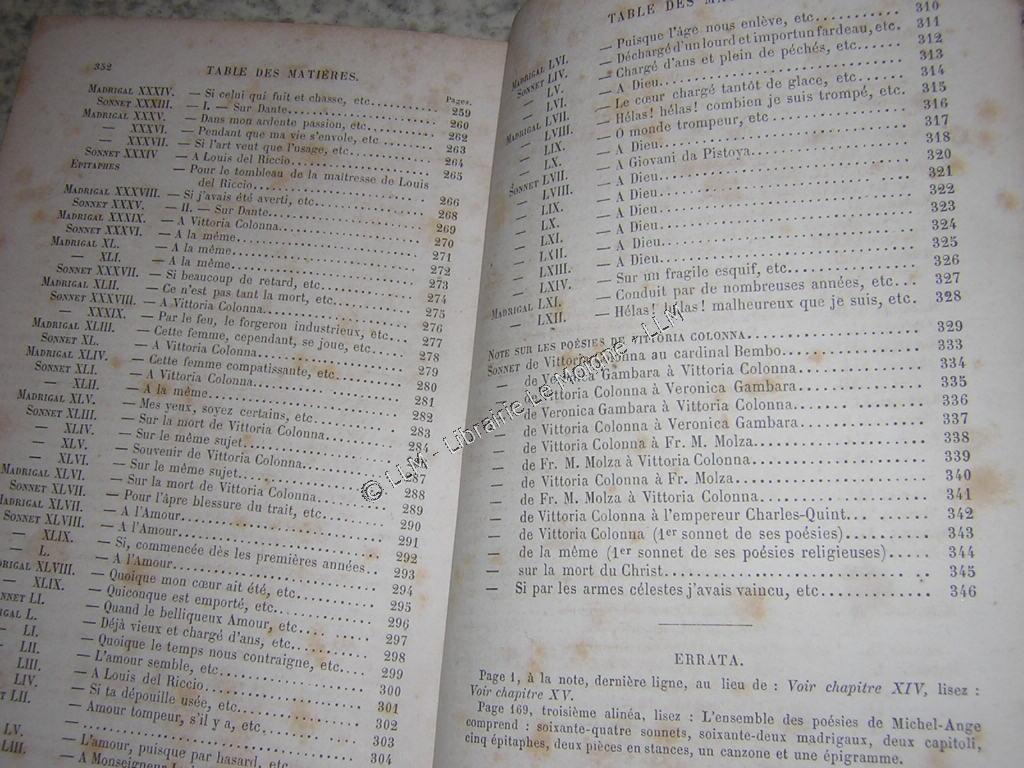 352
TABLE DES MATIÈRES.
Pages.
MADRIGAL XXXIV. — Si celui qui fuit et chasse, etc. 259
SONNET XXXIII. — I. — Sur Dante. 260
MADRIGAL XXXV. — Dans mon ardente passion, etc. 262
— XXXVI. — Pendant que ma vie s'envole, etc. 263
— XXXVII. — Si l'art veut que l'usage, etc. 264
SONNET XXXIV — A Louis del Riccio. 265
EPITAPHES — Pour le tombeau de la maîtresse de Louis
del Riccio. 266
MADRIGAL XXXVIII. — Si j'avais été averti, etc. 268
SONNET XXXV. — II. — Sur Dante. 269
MADRIGAL XXXIX. — A Vittoria Colonna. 270
SONNET XXXVI. — A la même. 271
MADRIGAL XL. — A la même. 272
— XLI. — A la même. 273
SONNET XXXVII. — Si beaucoup de retard, etc. 274
MADRIGAL XLII. — Ce n'est pas tant la mort, etc. 275
SONNET XXXVIII. — A Vittoria Colonna. 276
— XXXIX. — Par le feu, le forgeron industrieux, etc. 277
MADRIGAL XLIII. — Cette femme, cependant, se joue, etc. 278
SONNET XL. — A Vittoria Colonna. 279
MADRIGAL XLIV. — Cette femme compatissante, etc. 280
SONNET XLI. — A Vittoria Colonna. 281
— XLII. — A la même. 282
MADRIGAL XLV. — Mes yeux, soyez certains, etc. 283
SONNET XLIII. — Sur la mort de Vittoria Colonna. 284
— XLIV. — Sur le même sujet.
— XLV. — Souvenir de Vittoria Colonna. 287
— XLVI. — Sur le même sujet. 288
MADRIGAL XLVI. — Sur la mort de Vittoria Colonna. 289
SONNET XLVII. — Pour l'âpre blessure du trait, etc. 290
XLVII. — A l'Amour. 291
SONNET XLVIII. — A l'Amour. 292
— XLIX. — Si, commencée dès les premières années. 293
— L. — A l'Amour. 294
XLVIII. — Quoique mon cœur ait été, etc. 295
— XLIX. — Quiconque est emporté, etc. 296
LI. — Quand le belliqueux Amour, etc. 297
L. — Déjà vieux et chargé d'ans, etc. 298
— LI. — Quoique le temps nous contraigne, etc. 299
LII. — L'amour semble, etc. 300
LIII. — A Louis del Riccio. 301
LIV. — Si ta dépouille usée, etc. 302
LII. — Amour tompeur, s'il y a, etc. 303
LV. — 304
LIII. — L'amour, puisque par hasard, etc.
— A Monseigneur
TABLE DES
MADRIGAL LVI. — Puisque l'âge nous enlève, etc. 310
SONNET LIV. — Déchargé d'un lourd et importun fardeau, etc. 311
— LV. — Chargé d'ans et plein de péchés, etc. 312
— LVI. — A Dieu. 313
MADRIGAL LVII. — Le cœur chargé tantôt de glace, etc. 314
— LVIII. — Hélas! hélas! combien je suis trompé, etc. 315
— LIX. — O monde trompeur, etc. 316
— LX. — A Dieu. 317
SONNET LVII. — A Giovani da Pistoya. 318
— LVIII. — A Dieu. 320
— LIX. — A Dieu. 321
— LX. — A Dieu. 322
— LXI. — A Dieu. 323
— LXII. — A Dieu. 324
— LXIII. — A Dieu. 325
— LXIV. — Sur un fragile esquif, etc. 326
MADRIGAL LXI. — Conduit par de nombreuses années, etc. 327
— LXII. — Hélas! hélas! malheureux que je suis, etc. 328
NOTE SUR LES POÉSIES DE VITTORIA COLONNA. 329
SONNET de Vittoria Colonna au cardinal Bembo. 333
— de Veronica Gambara à Vittoria Colonna. 334
— de Vittoria Colonna à Veronica Gambara. 335
— de Veronica Gambara à Vittoria Colonna. 336
— de Vittoria Colonna à Veronica Gambara. 337
— de Vittoria Colonna à Fr. M. Molza. 338
— de Fr. M. Molza à Vittoria Colonna. 339
— de Vittoria Colonna à Fr. Molza. 340
— de Fr. M. Molza à Vittoria Colonna. 341
— de Vittoria Colonna à l'empereur Charles-Quint. 342
— de Vittoria Colonna (1er sonnet de ses poésies). 343
— de la même (1er sonnet de ses poésies religieuses). 344
— sur la mort du Christ. 345
— Si par les armes célestes j'avais vaincu, etc. 346
ERRATA.
Page 1, à la note, dernière ligne, au lieu de : Voir chapitre XIV, lisez :
Voir chapitre XV.
Page 169, troisième alinéa, lisez : L'ensemble des poésies de Michel-Ange
comprend : soixante-quatre sonnets, soixante-deux madrigaux, deux capitoli,
cinq épitaphes, deux pièces en stances, un canzone et une épigramme.
© LLM - Librairie Le Moigne - LLM